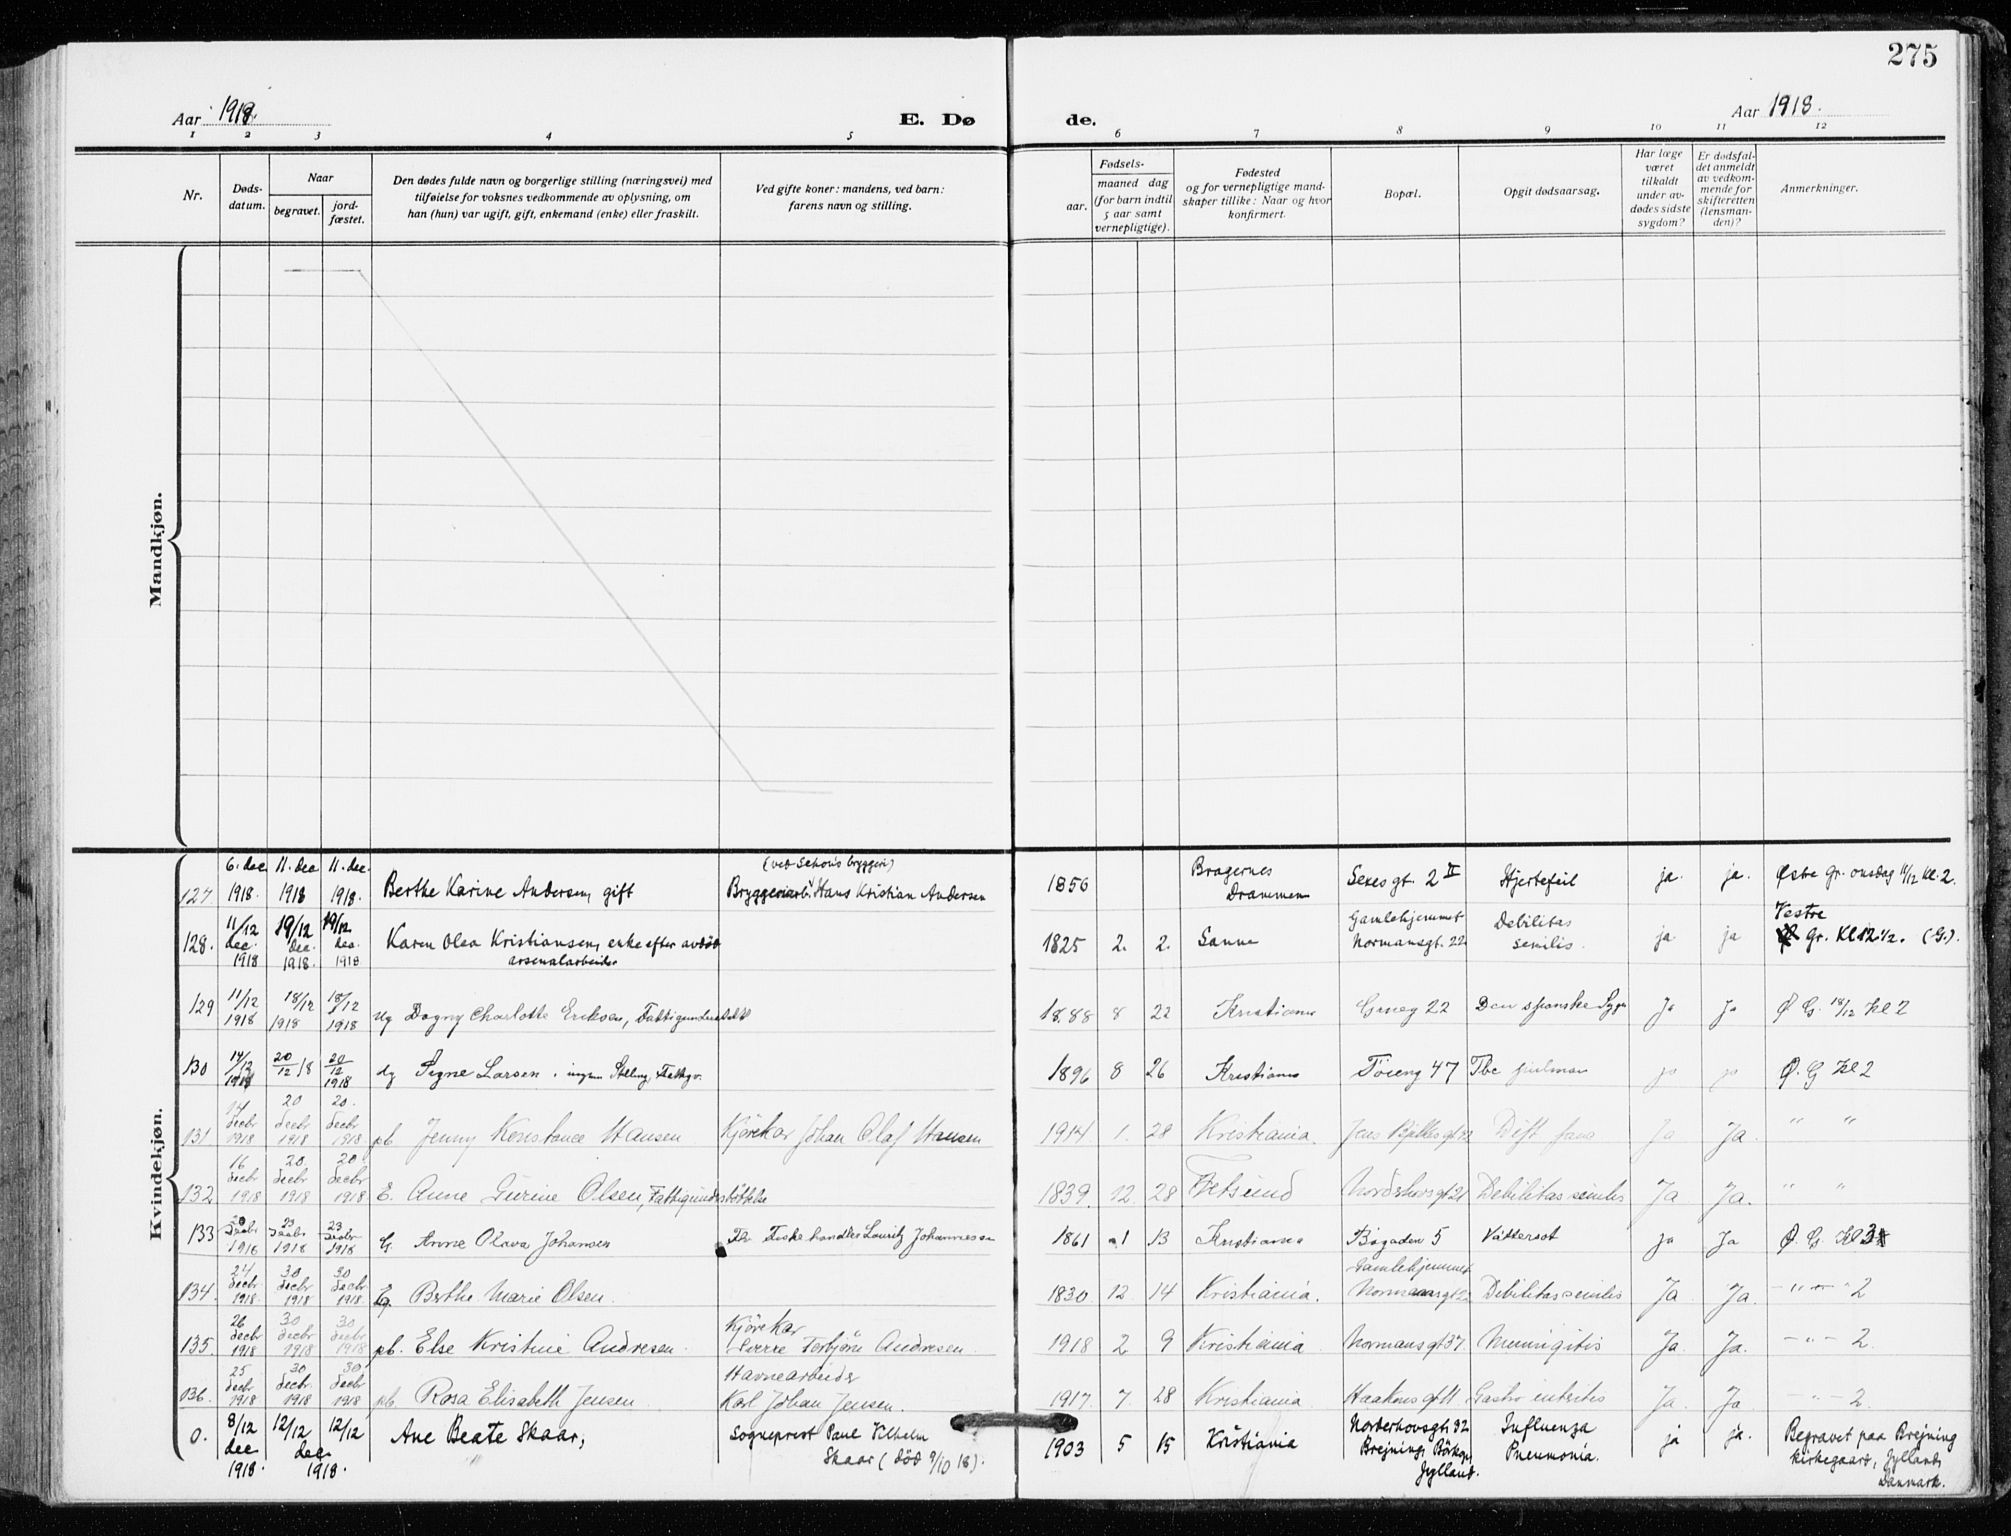 275
Aar 1918.
E. Dø
de.
Aar 1918.
1 2 3 4 5 6 7 8 9 10 11 12
Nr.
Døds-
datum.
Naar
begravet.
jord-
fæstet.
Den dødes fulde navn og borgerlige stilling (næringsvei) med
tilføielse for voksnes vedkommende av oplysning, om
han (hun) var ugift, gift, enkemand (enke) eller fraskilt.
Ved gifte koner: mandens, ved barn:
farens navn og stilling.
Fødsels-
aar.
maaned dag
(for barn indtil
5 aar samt
vernepligtige).
Fødested
og for vernepligtige mand-
skaper tillike: Naar og hvor
konfirmert.
Bopæl.
Opgit dødsaarsag.
Har læge
været
tilkaldt
under av-
dødes sidste
sygdom?
Er dødsfal-
det anmeldt
av vedkom-
mende for
skifteretten
(lensman-
den)?
Anmerkninger.
Mandkjøn.
Kvindekjøn.
6. dec 11. dec 11. dec. (ved Schous bryggeri) Bragernes
127. 1918. 1918 1918. Berthe Karine Andersen, gift Bryggeriarb. Hans Kristian Andersen 1856 Drammen Sexesgt. 2 II Hjertefeil ja. ja. Østre Gr. onsdag 11/12 kl. 2.
11/12 19/12 19/12 Gamlehjemmet Debilitas Vestre
128. dec. dec. dec. Karen Olea Kristiansen, enke efter avdød 1825 2. 2. Sanne Normansgt. 22 senilis. ja ja Gr. Kl 12 1/2. (G.)
1918 1918. 1918 arsenalarbeider
129 11/12 1918 18/12 1918 18/12 1918 ug Dagny Charlotte Eriksen, Fattigunderstøtt 1888 8 22 Kristiania 22 Den spanske Syge Ja Ja Ø G. 18/12 Kl 2
130 14/12 1918 20/12 18 20/12 1918 Signe Larsen. ingen Stilling, 1896 8 26 Kristiania Tøieng 47 Tbc pulmon ja ja Ø. G Kl 2
14 20 20.
131 decbr decbr decbr
1918 1918 1918 pb Jenny Konstance Hansen Kjørekar Johan Olaf Hansen 1914. 1. 28 Kristiania. Jens Bjelkesgt Ja Ja. " "
16 20. 20.
132 decbr decbr decbr
1918 1918 1918 E. Anne Gurine Olsen, Fattigunderstøttelse 1839. 12. 28 Fetsund Nordahovsgt 21 Debilitas senilis Ja Ja. " "
20 23 23
133 decbr decbr decbr
1918 1918 1918 G. Anne Olava Johansen Fiskehandler Lauritz Johannesen 1861 1 13 Kristiania Bøgaden 5 Vattersot ja Ja Ø. G. Kl 3
24 30 30 Gamlehjemmet
134. decbr decbr decbr
1918. 1918 1918. Berthe Marie Olsen. 1830. 12. 14 Kristiania. Normansgt 22 Debilitas senilis Ja Ja. — " — " 2
26 30 30 Kjørekar
135. decbr decbr decbr
1918 1918 1918 pb. Else Kristine Andresen. Sverre Torbjørn Andresen. 1918 2 9 Kristiania Normansgt 37. Meningitis Ja. Ja. — " — 2.
25 30 30 Havnearbeider
136. decbr decbr. decbr
1918 1918 1918 pb. Rosa Elisabeth Jensen Karl Johan Jensen. 1917. 7. 28 Kristiania Haakonsgt 11. Gastro enteritis Ja. Ja — " — 2.
0. 8/12 12/12 12/12 Ane Beate Skaar, Sogneprest Paul Vilhelm Norderhovsgt. 32 Influenza
dec dec. Skaar (død 9/10 18). 1903 5 15 Kristiania Brejning, Børkop, Pneumonia. ja ja. Begravet paa Brejning
1918. 1918. Jylland. kirkegaard, Jylland,
Danmark.